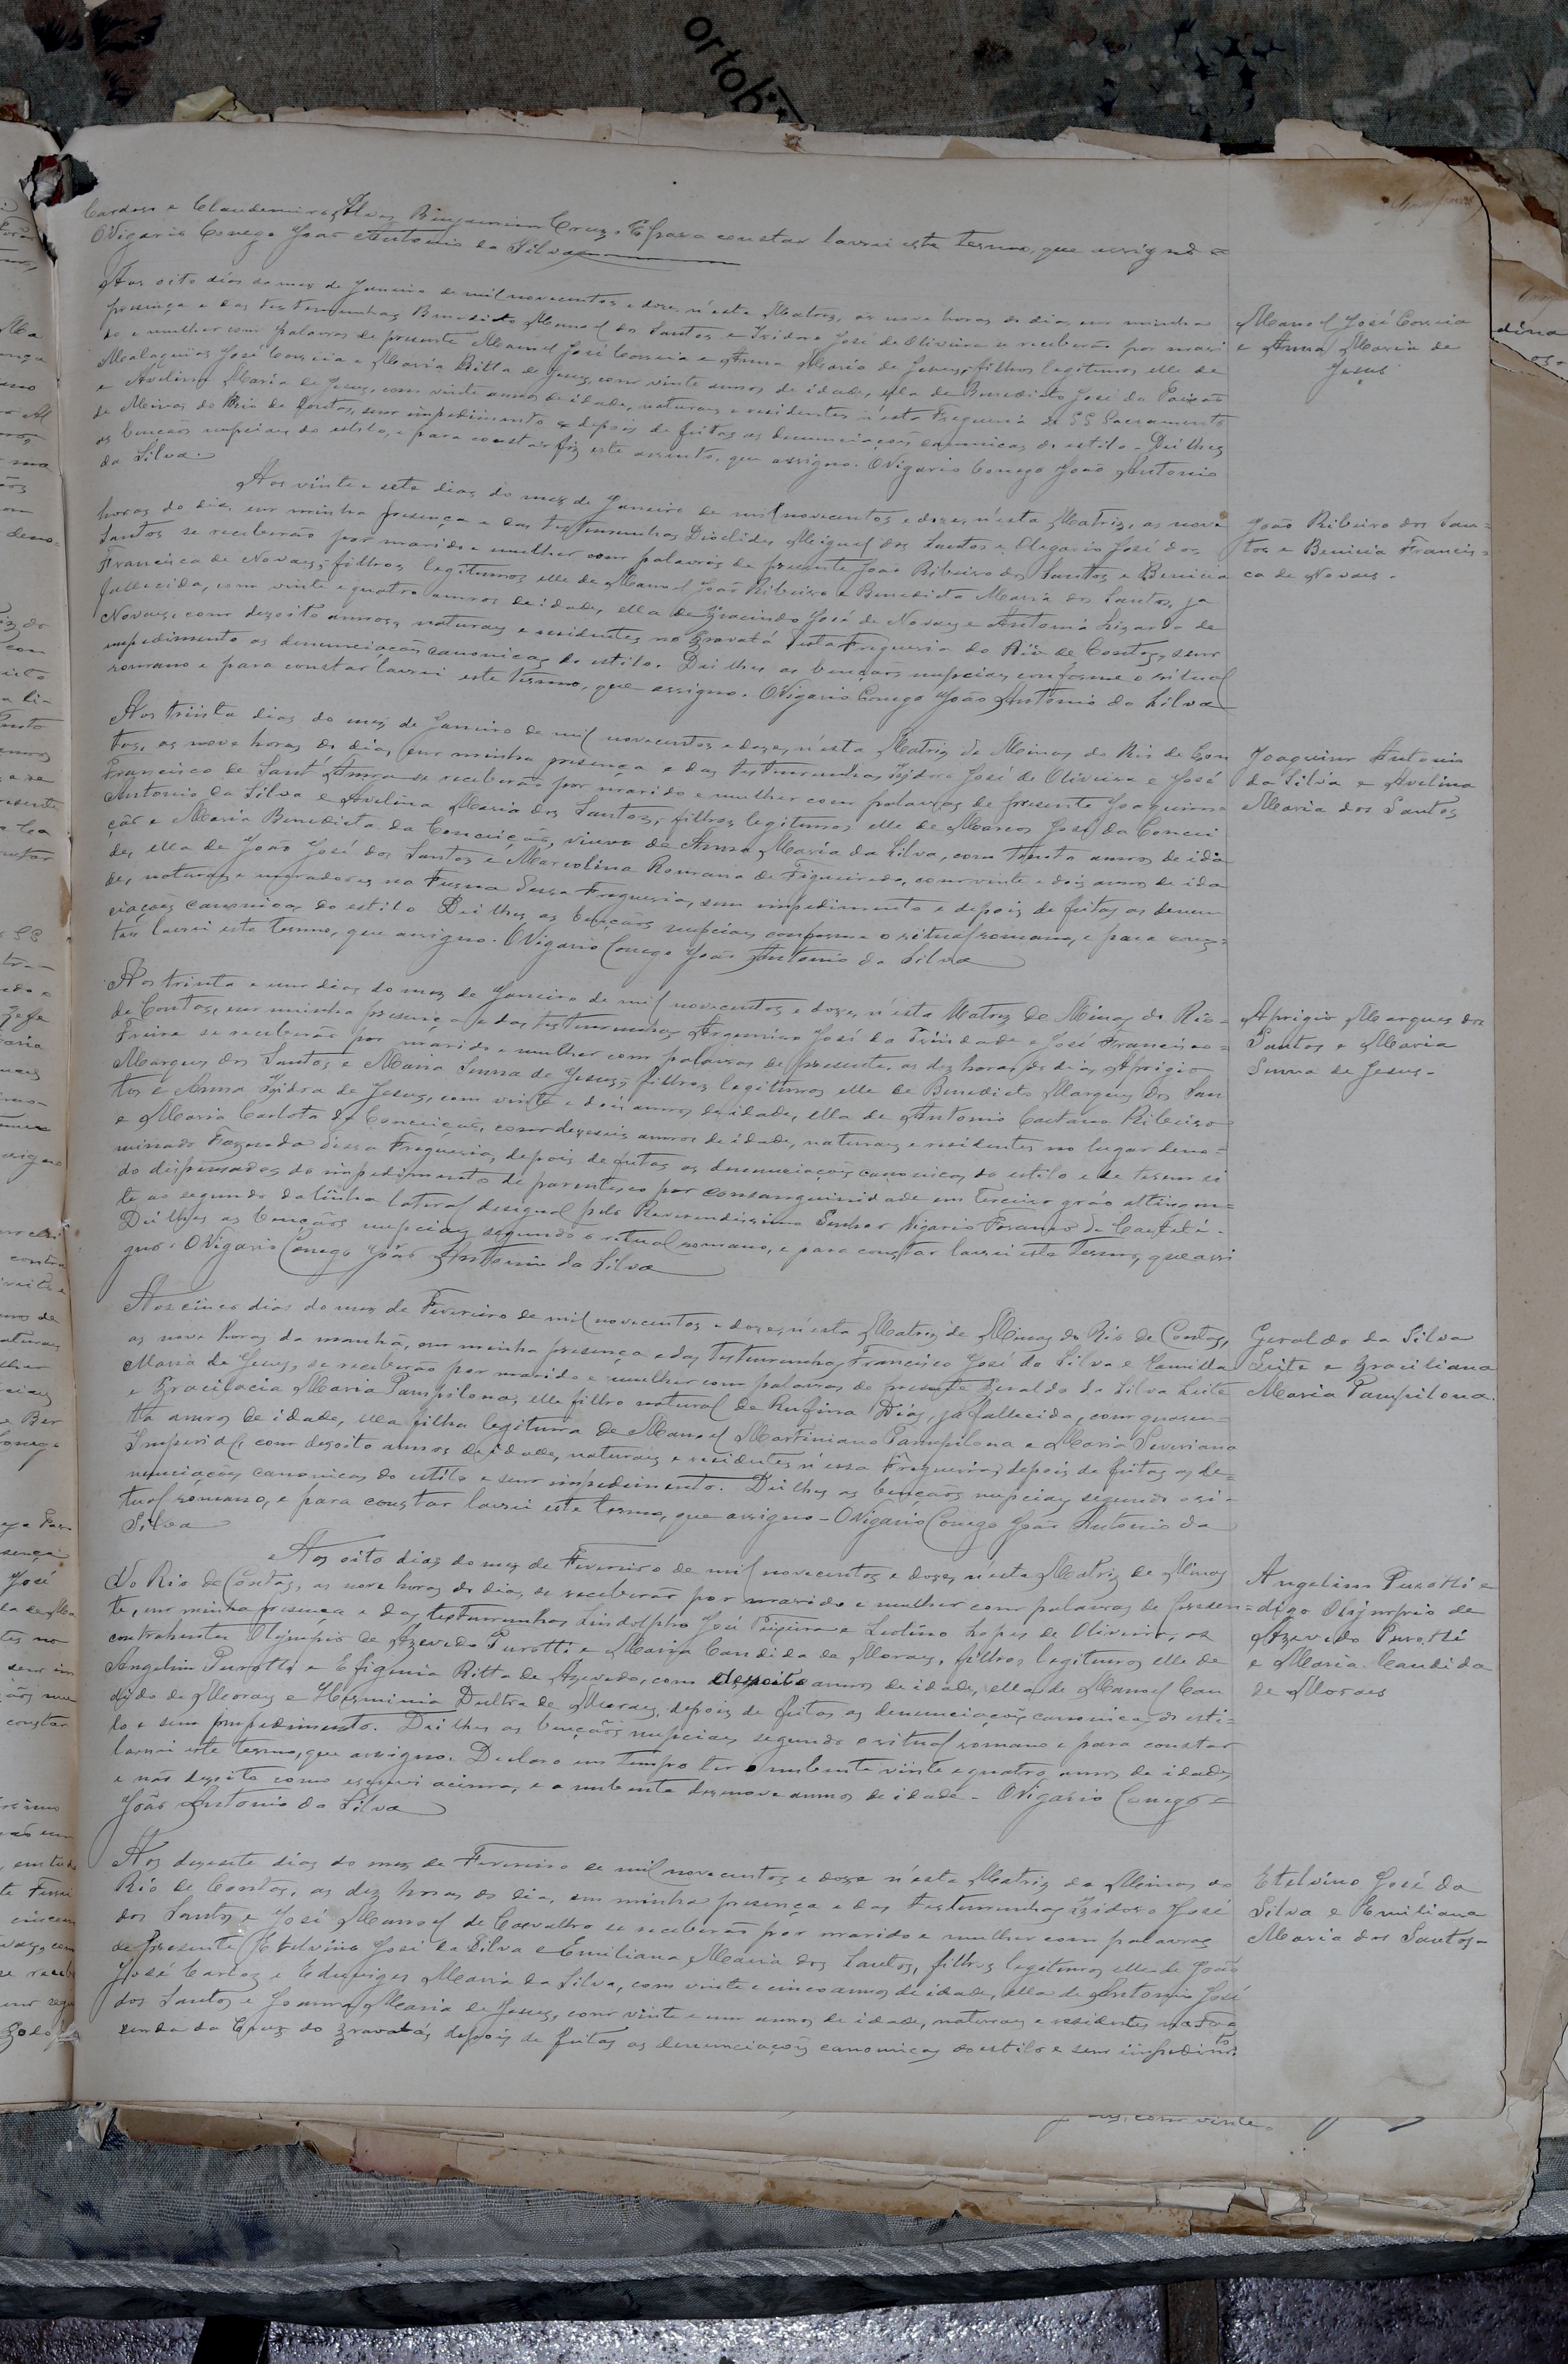 Cardoso e Claudemiro Alves Benjamim Cruz. E para constar lavrei este termo, que assigno =
O Vigario Conego João Antonio da Silva
Aos oito dias do mez de Janeiro de mil novecentos e doze, n'esta Matriz, as nove horas do dia, em minha
presença e das testemunhas Benedicto Manoel dos Santos e Izidoro José de Oliveira se receberão por mari
do e mulher com palavras de presente Manoel José Correia e Anna Maria de Jesus, filhos legitimos elle de
Malaquias José Correia e Maria Ritta de Jesus, com vinte annos de idade, ella de Benedicto José da Paixão
e Avelina Maria de Jesus, com vinte annos de idade, naturaes e residentes n'esta Freguesia do SS Sacramento
de Minas do Rio de Contas, sem impedimento e depois de feitas as denunciações canonicas do estilo - Dei lhes
as bençãos nupciaes do estilo, e para constar fiz este assento, que assigno. O Vigario Conego João Antonio
da Silva.
Manoel José Correia
e Anna Maria de
Jesus
Aos vinte e sete dias do mez de Janeiro de mil novecentos e doze, n'esta Matriz, as nove
horas do dia, em minha presença e das testemunhas Dioclides Miguel dos Santos e Olegario José dos
Santos se receberão por marido e mulher com palavras de presente João Ribeiro dos Santos e Benicia
Francisca de Novaes, filhos legitimos elle de Manoel João Ribeiro e Benedicta Maria dos Santos, ja
fallecida, com vinte e quatro annos de idade, ella de Gracindo José de Novaes e Antonia Lizarda de
Novaes, com dezoito annos, naturaes e residentes no Gravatá desta Freguesia do Rio de Contas, sem
impedimento as denunciações canonicas do estilo. Dei lhes as bençãos nupciaes conforme o ritual
romano e para constar lavrei este termo, que assigno. O Vigario Conego João Antonio da Silva
João Ribeiro dos San=
tos e Benicia Francis=
ca de Novaes.
Aos trinta dias do mez de Janeiro de mil novecentos e doze, n'esta Matriz de Minas do Rio de Con
tas, as nove horas do dia, em minha presença e das testemunhas Izidoro José de Oliveira e José
Francisco de Sant'Anna se receberão por marido e mulher com palavras de presente Joaquim
Antonio da Silva e Avelina Maria dos Santos, filhos legitimos elle de Marcos José da Concei
ção e Maria Benedicta da Conceição, viuvo de Anna Maria da Silva, com trinta annos de ida
de, ella de João José dos Santos e Marcolina Romana de Figueiredo, com vinte e dois annos de ida
de, naturaes e moradores na Furna dessa Freguesia, sem impedimento e depois de feitas as denun
ciações canonicas do estilo Dei lhes as bençãos nupciaes conforme o ritual romano, e para cons=
tar lavrei este termo, que assigno. O Vigario Conego João Antonio da Silva
Joaquim Antonio
da Silva e Avelina
Maria dos Santos
Aos trinta e um dias do mez de Janeiro de mil novecentos e doze, n'esta Matriz de Minas do Rio=
de Contas, em minha presença e das testemunhas Argemiro José da Trindade e José Francisco=
Freire se receberão por marido e mulher com palavras de presente, as dez horas do dia, Aprigio
Marques dos Santos e Maria Senna de Jesus, filhos legitimos elle de Benedicto Marques dos San
tos e Anna Izidra de Jesus, com vinte e dois annos de idade, ella de Antonio Caetano Ribeiro
e Maria Carlota da Conceição, com dezeseis annos de idade, naturaes e residentes no lugar deno=
minado Fazenda dessa Freguesia, depois de feitas as denunciações canonicas do estilo e de terem si
do dispensados do impedimento de parentesco por consanguinidade em terceiro gráo attingen=
te ao segundo da linha lateral desigual pelo Reverendissimo Senhor Vigario Foraneo de Caetité.
Dei lhes as bençãos nupciaes segundo o ritual romano, e para constar lavrei este termo, que assi
gno. O Vigario Conego João Antonio da Silva
Aprigio Marques dos
Santos e Maria
Senna de Jesus.
Aos cinco dias do mez de Fevereiro de mil novecentos e doze, n'esta Matriz de Minas do Rio de Contas,
as nove horas da manhã, em minha presença e das testemunhas Francisco José da Silva e Camilla
Maria de Jesus, se receberão por marido e mulher com palavras de presente Geraldo da Silva Leite
e Gracilacia Maria Pampilona, elle filho natural de Rufina Dias, já fallecida, com quaren=
ta annos de idade, ella filha legitima de Manoel Martiniano Pampilona e Maria Severiana
Imperial, com dezoito annos de idade, naturaes e residentes n'essa Freguesia, depois de feitas as de=
nunciações canonicas do estilo e sem impedimento. Dei lhes as bençãos nupciaes segundo o ri-
tual romano, e para constar lavrei este termo, que assigno - O Vigario Conego João Antonio da
Silva
Geraldo da Silva
Leite e Graciliana
Maria Pampilona.
Aos oito dias do mez de Fevereiro de mil novecentos e doze, n'esta Matriz de Minas
do Rio de Contas, as nove horas do dia, se receberão por marido e mulher com palavras de presen=
te, em minha presença e das testemunhas Lindolpho José Peixeira e Leolino Lopes de Oliveira, os
contrahentes Olympio de Azevedo Purotti e Maria Candida de Moraes, filhos legitimos elle de
Angelim Purotti e Efigenia Ritta de Azevedo, com dezoito annos de idade, ella de Manoel Can
dido de Moraes e Herminia Dultra de Moraes, depois de feitas as denunciações canonicas do esti=
lo e sem impedimento. Dei lhes as bençãos nupciaes segundo o ritual romano e para constar
lavrei este termo, que assigno. Declaro em tempo ter o nubente vinte e quatro annos de idade,
e não dezoito como escrevi acima, e a nubente dezenove annos de idade - O Vigario Conego =
João Antonio da Silva
Angelim Purotti e
digo Olympio de
Azevedo Purotti
e Maria Candida
de Moraes
Aos dezesete dias do mez de Fevereiro de mil novecentos e doze n'esta Matriz de Minas do
Rio de Contas, as dez horas do dia, em minha presença e das testemunhas Izidoro José
dos Santos e José Manoel de Carvalho se receberão por marido e mulher com palavras
de presente Etelvino José da Silva e Emiliana Maria dos Santos, filhos legitimos elle de João
José Carlos e Eduviges Maria da Silva, com vinte e cinco annos de idade, ella de Antonio José
dos Santos e Joanna Maria de Jesus, com vinte e um annos de idade, naturaes e residentes na Faz
enda da Cruz do Gravatás, depois de feitas as denunciações canonicas do estilo e sem impedimto.
Etelvino José da
Silva e Emiliana
Maria dos Santos